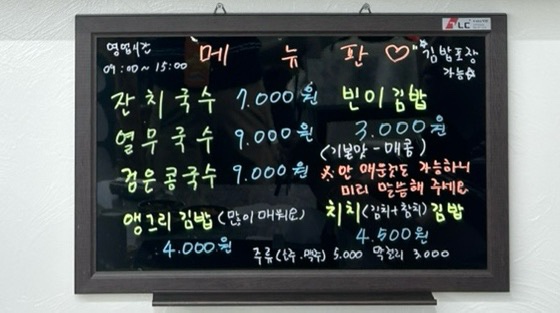 영업시간
09:00~15:00
메뉴판♡
*김밥포장
가능
LC
잔치국수 7.000원
열무국수 9.000원
검은콩국수 9.000원
빈이김밥
3.000원
(기본맛-매콤)
※안 매운맛도 가능하니
미리 말씀해 주세요
앵그리김밥(많이 매워요)
4.000원
치치(김치+참치)김밥
4.500원
주류(소주.맥주) 5.000 막걸리 3.000